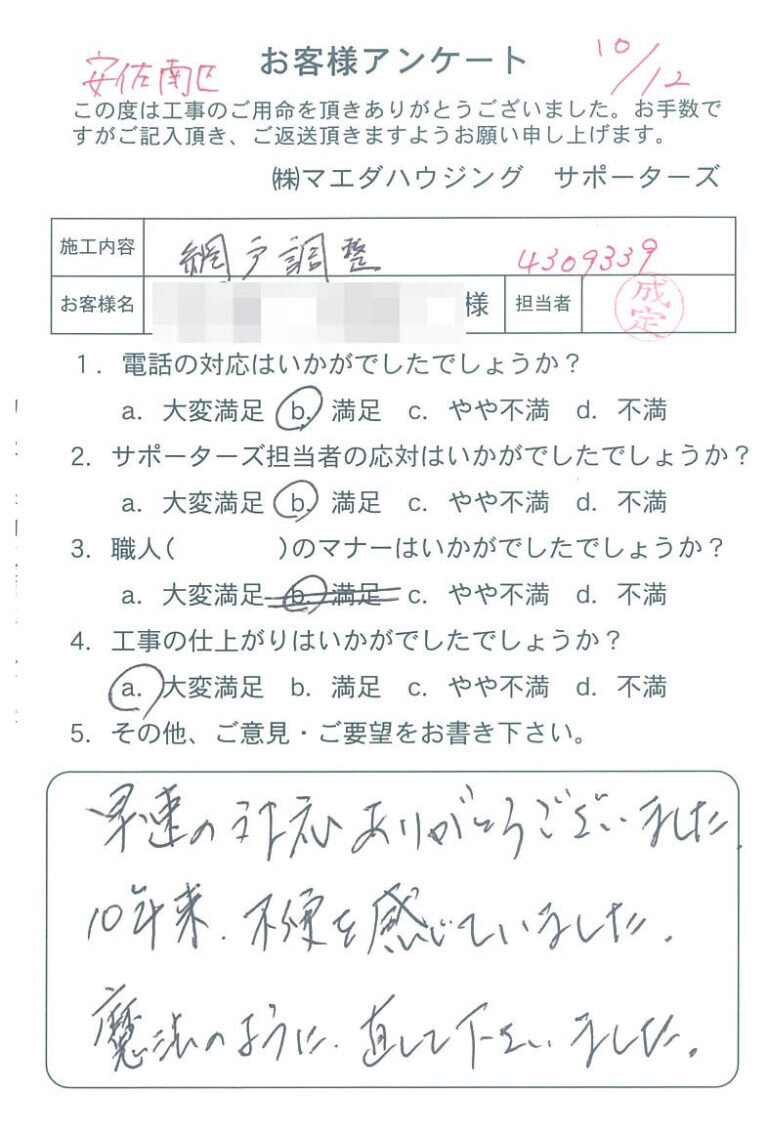 安佐南区 お客様アンケート 10/12
この度は工事のご用命を頂きありがとうございました。お手数で
すがご記入頂き、ご返送頂きますようお願い申し上げます。
㈱マエダハウジング サポーターズ
施工内容 網戸調整 4309339
お客様名 様 担当者 成定
1. 電話の対応はいかがでしたでしょうか？
a. 大変満足 b. 満足 c. やや不満 d. 不満
2. サポーターズ担当者の応対はいかがでしたでしょうか？
a. 大変満足 b. 満足 c. やや不満 d. 不満
3. 職人( )のマナーはいかがでしたでしょうか？
a. 大変満足 b. 満足 c. やや不満 d. 不満
4. 工事の仕上がりはいかがでしたでしょうか？
a. 大変満足 b. 満足 c. やや不満 d. 不満
5. その他、ご意見・ご要望をお書き下さい。
早速の対応ありがとうございました
10年来、不便を感じていました。
魔法のように、直して下さいました。